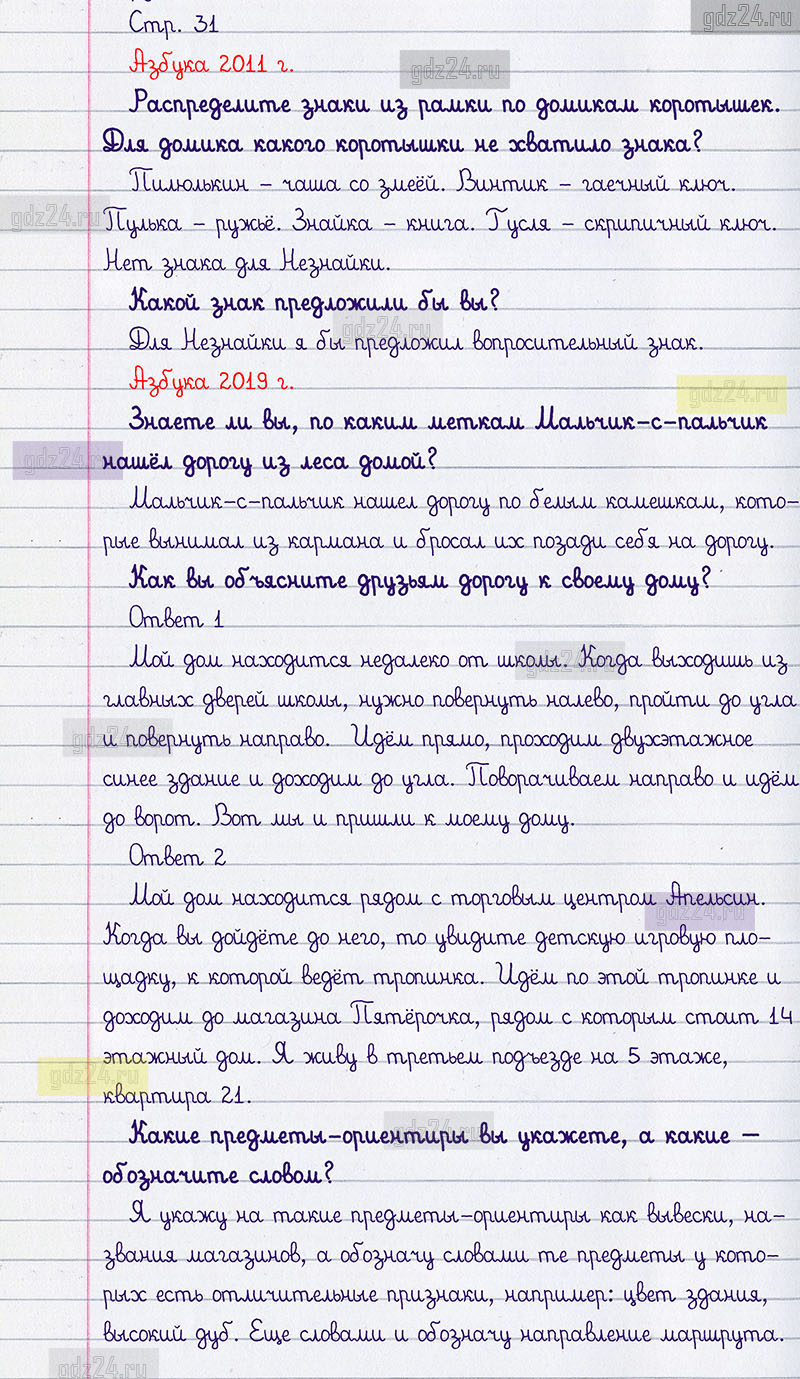 gdz24.ru
Стр. 31
Азбука 2011 г.
gdz24.ru
Распределите знаки из рамки по домикам коротышек.
Для домика какого коротышки не хватило знака?
Пилюлькин – чаша со змеёй. Винтик – гаечный ключ.
gdz24.ru
Пулька – ружьё. Знайка – книга. Гусля – скрипичный ключ.
Нет знака для Незнайки.
Какой знак предложили бы вы?
gdz24.ru
Для Незнайки я бы предложил вопросительный знак.
Азбука 2019 г.
gdz24.ru
Знаете ли вы, по каким меткам Мальчик-с-пальчик
gdz24.ru
нашёл дорогу из леса домой?
Мальчик-с-пальчик нашел дорогу по белым камешкам, кото-
рые вынимал из кармана и бросал их позади себя на дорогу.
Как вы объясните друзьям дорогу к своему дому?
Ответ 1
gdz24.ru
Мой дом находится недалеко от школы. Когда выходишь из
главных дверей школы, нужно повернуть налево, пройти до угла
gdz24.ru
и повернуть направо. Идём прямо, проходим двухэтажное
синее здание и доходим до угла. Поворачиваем направо и идём
до ворот. Вот мы и пришли к моему дому.
Ответ 2
Мой дом находится рядом с торговым центром Апельсин.
gdz24.ru
Когда вы дойдёте до него, то увидите детскую игровую пло-
щадку, к которой ведёт тропинка. Идём по этой тропинке и
доходим до магазина Пятёрочка, рядом с которым стоит 14
этажный дом. Я живу в третьем подъезде на 5 этаже,
gdz24.ru
квартира 21.
gdz24.ru
Какие предметы-ориентиры вы укажете, а какие –
обозначите словом?
Я укажу на такие предметы-ориентиры как вывески, на-
звания магазинов, а обозначу словами те предметы у кото-
рых есть отличительные признаки, например: цвет здания,
высокий дуб. Еще словами и обозначу направление маршрута.
gdz24.ru